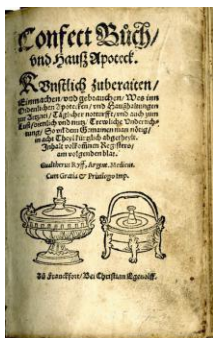 Confect Bůch/
vnd Hauß Apoteck.
Kunstlich zuberaiten/
Einmachen/ vnd gebrauchen/ Wes inn
Ordenlichen Apotecken/ vnd Haußhaltungen
zur Artznei/ Täglicher notturfft/ vnd auch zum
Lust/ dienlich vnd nutz/ Trewliche Vnderrich
tung/ So
in acht Theyl kürtzlich abgetheylt.
Inhalt vollkomnen Registers/
am volgenden blat.
Gualtherus Ryff, Argent. Medicus.
Cum Gratia & Priuilegio Imp.
Zů Franckfort/ Bei Christian Egenolff.